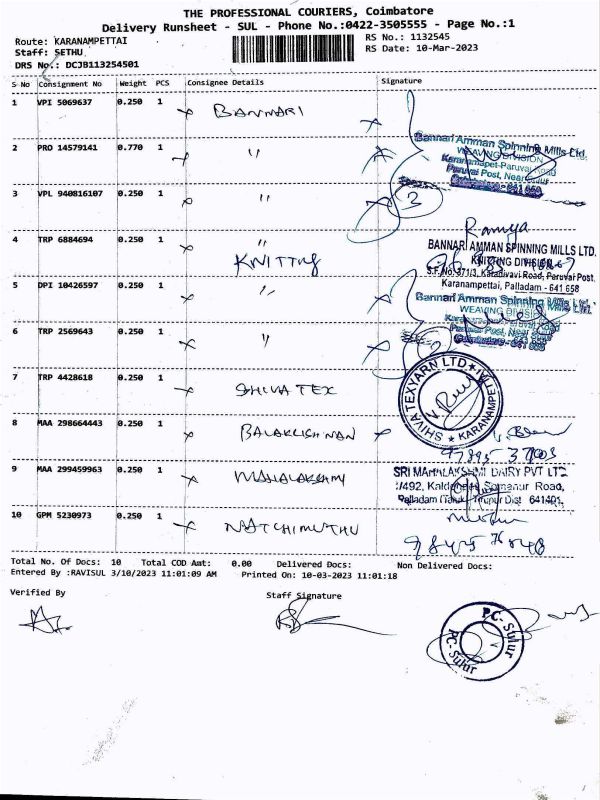 THE PROFESSIONAL COURIERS, Coimbatore
Delivery Runsheet - SUL - Phone No.:0422-3505555 - Page No.:1
Route: KARANAMPETTAI
RS No.: 1132545
Staff: SETHU
RS Date: 10-Mar-2023
DRS No.: DCJB113254501
S No Consignment No Weight PCS Consignee Details Signature
1 VPI 5069637 0.250 1 BANNARI
2 PRO 14579141 0.770 1 "
Bannari Amman Spinning Mills Ltd.
WEAVING DIVISION
Karanampet-Paruvai Road
Paruvai Post, Near Sulur
Coimbatore - 641 658
3 VPL 940816107 0.250 1 "
3
Ramya
4 TRP 6884694 0.250 1 "
KNITTING
BANNARI AMMAN SPINNING MILLS LTD.
KNITTING DIVISION
S.F.No. 371/3, Karadivavi Road, Paruvai Post,
Karanampettai, Palladam - 641 658
5 DPI 10426597 0.250 1 "
Bannari Amman Spinning Mills Ltd.
WEAVING DIVISION
Karanampet-Paruvai Road
Paruvai Post, Near Sulur
Coimbatore - 641 658
6 TRP 2569643 0.250 1 "
7 TRP 4428618 0.250 1 SHIVA TEX
SHIVA TEXYARN LTD ★ KARANAMPETTAI ★
8 MAA 298664443 0.250 1 BALAKRISHNAN
9 MAA 299459963 0.250 1 MAHALAKSHMI
SRI MAHALAKSHMI DAIRY PVT LTD
Somanur Road,
Palladam (Taluk) Tirupur Dist 641401.
10 GPM 5230973 0.250 1 NATCHIMUTHU
Total No. Of Docs: 10 Total COD Amt: 0.00 Delivered Docs: Non Delivered Docs:
Entered By :RAVISUL 3/10/2023 11:01:09 AM Printed On: 10-03-2023 11:01:18
Verified By
Staff Signature
PC- Sulur
PC- Sulur